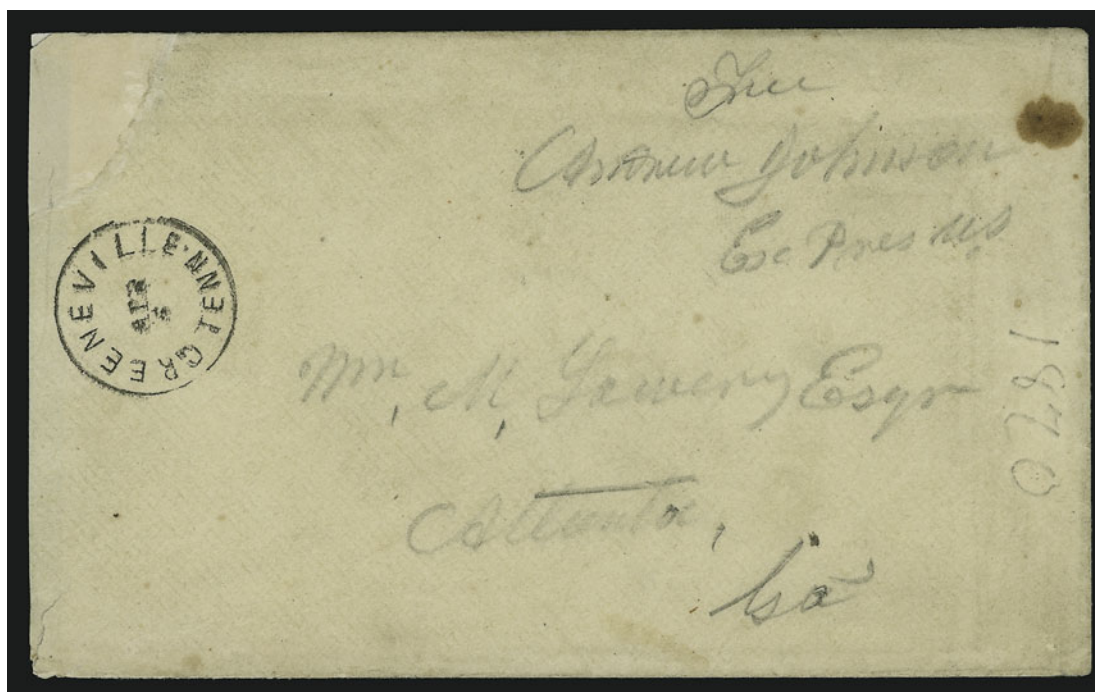 Free
Andrew Johnson
Ex Pres US
GREENEVILLE. TENN
APR
5
Wm, M, Lowery Esqr
Atlanta,
Ga
1870